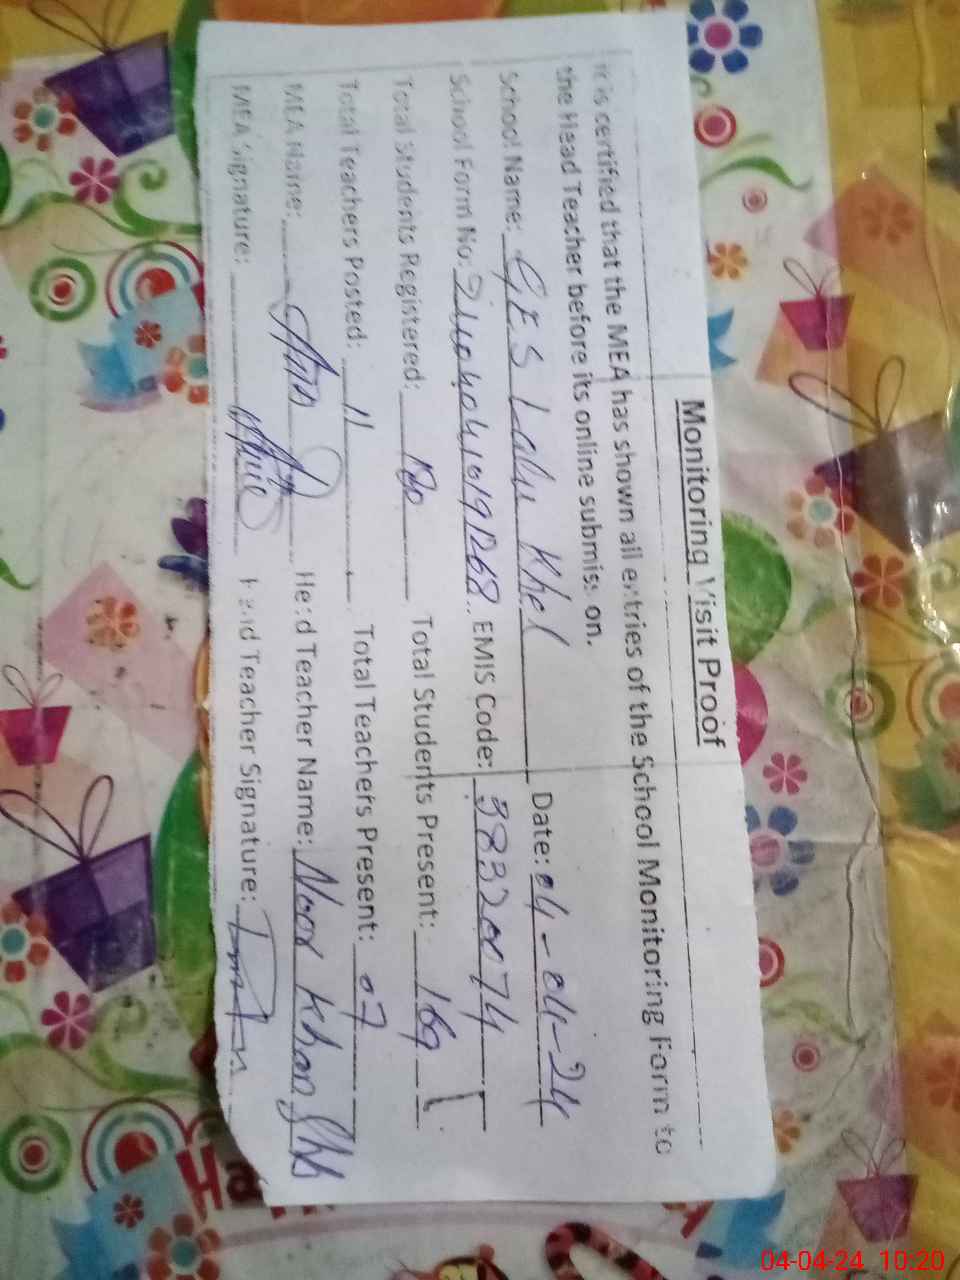 Monitoring Visit Proof
It is certified that the MEA has shown all entries of the School Monitoring Form to
the Head Teacher before its online submission.
School Name: GES Lalu Khel Date: 04-04-24
School Form No: EMIS Code: 38320074
Total Students Registered: 180 Total Students Present: 169
Total Teachers Posted: 11 Total Teachers Present: 07
MEA Name: Head Teacher Name: Noor Khan
MEA Signature: Head Teacher Signature:
Ha
04-04-24 10:20